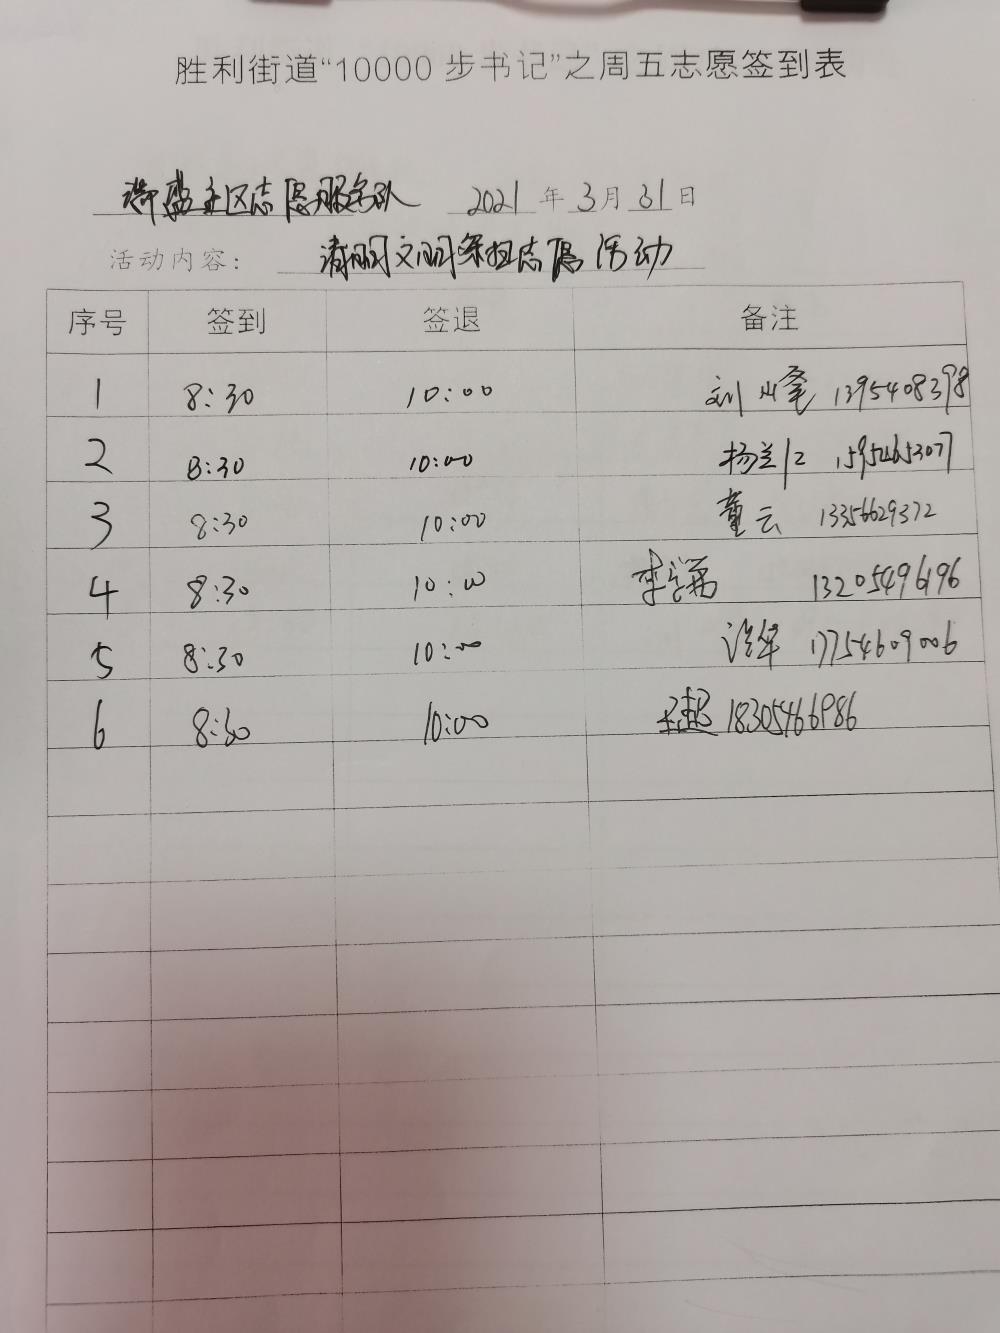 胜利街道“10000步书记”之周五志愿签到表
社区志愿服务队 2021年3月31日
活动内容: 清明文明祭扫志愿活动
序号 签到 签退 备注
1 8:30 10:00 刘 1395408398
2 8:30 10:00 杨兰江 15954653077
3 8:30 10:00 董云 13356629372
4 8:30 10:00 李 13205496196
5 8:30 10:00 17754609006
6 8:30 10:00 18305466986